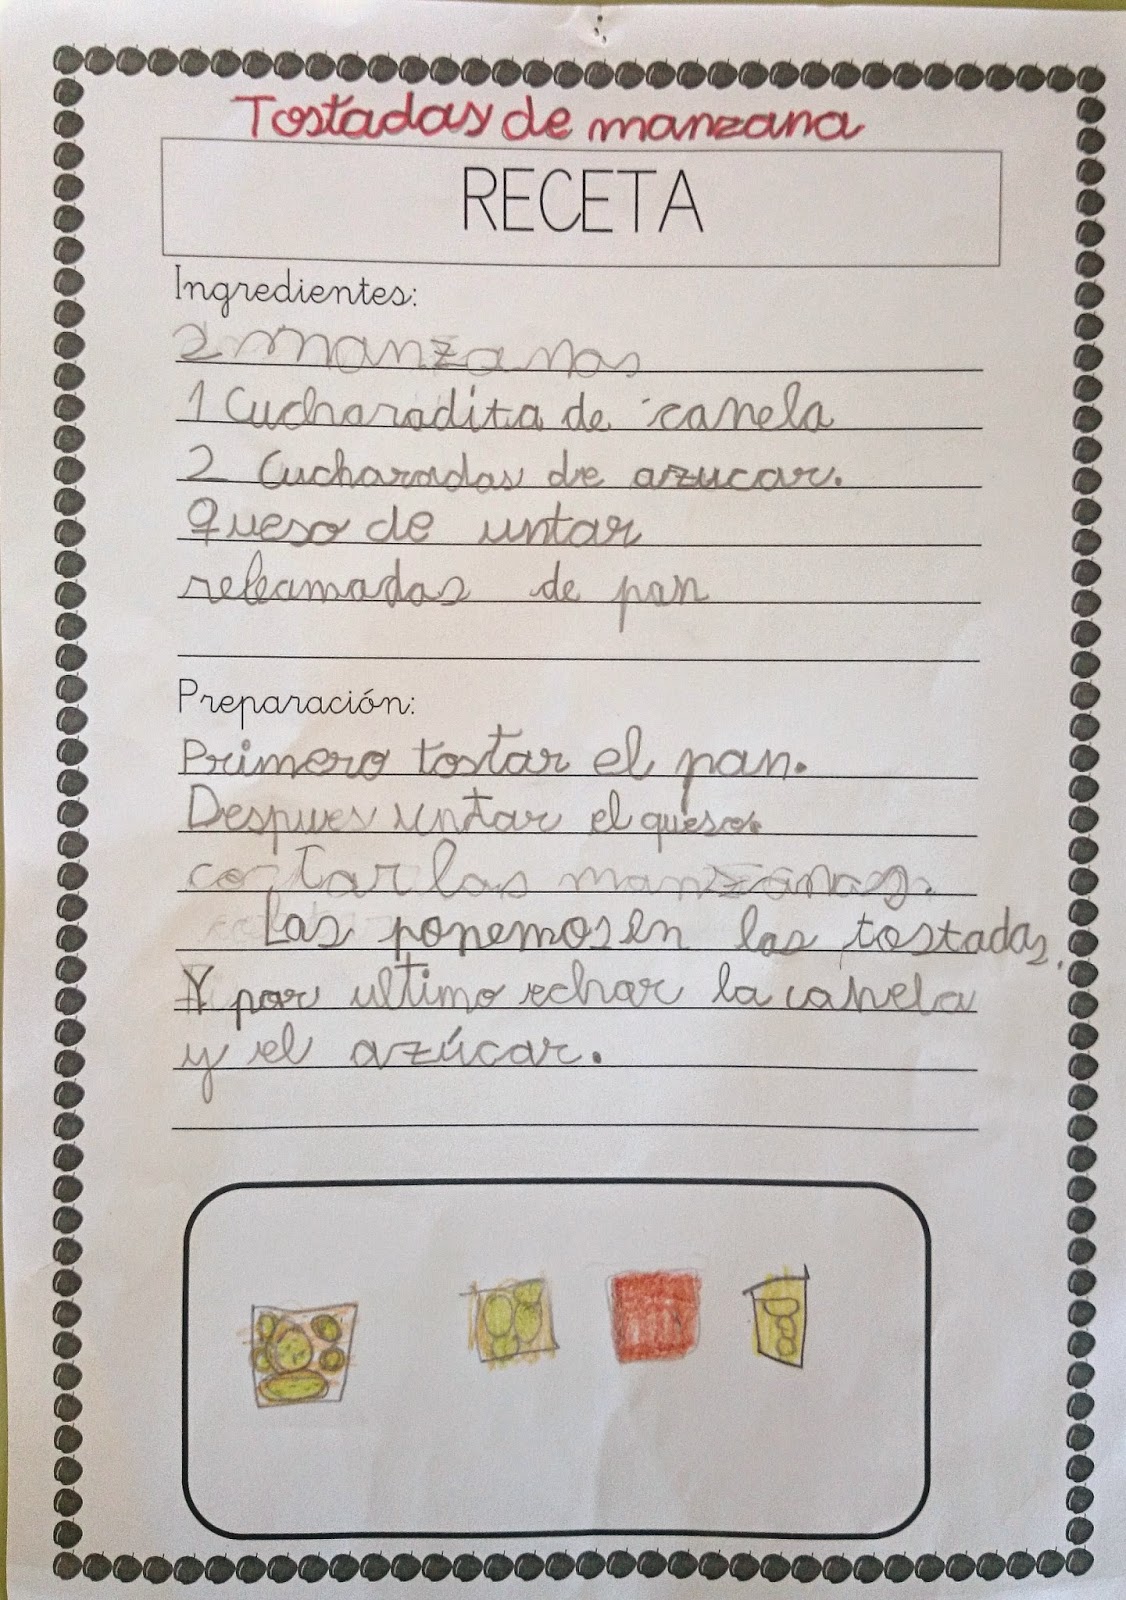 Tostadas de manzana
RECETA
Ingredientes:
2 manzanas
1 Cucharadita de canela
2 Cucharadas de azucar.
Queso de untar
rebamadas de pan
Preparación:
Primero tostar el pan.
Despues untar el queso.
cortar las manzanas.
Las ponemos en las tostadas.
Y por ultimo echar la canela
y el azúcar.